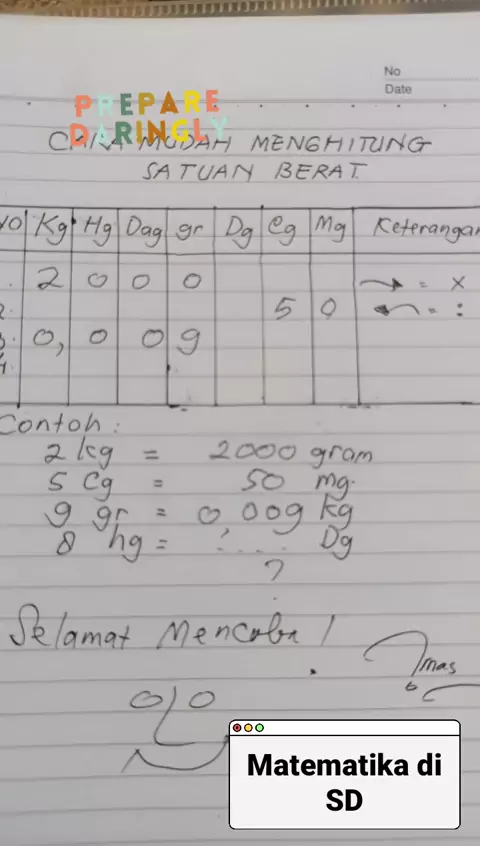 No
Date
PREPARE
DARINGLY
CARA MUDAH MENGHITUNG
SATUAN BERAT.
NO Kg Hg Dag gr Dg Cg Mg Keterangan
1. 2 0 0 0 → = x
2. 5 0 ← = :
3. 0, 0 0 9
4.
Contoh:
2 kg = 2000 gram
5 Cg = 50 mg.
9 gr = 0,009 kg
8 hg = .... Dg
?
Selamat Mencoba!
Imas
Matematika di
SD